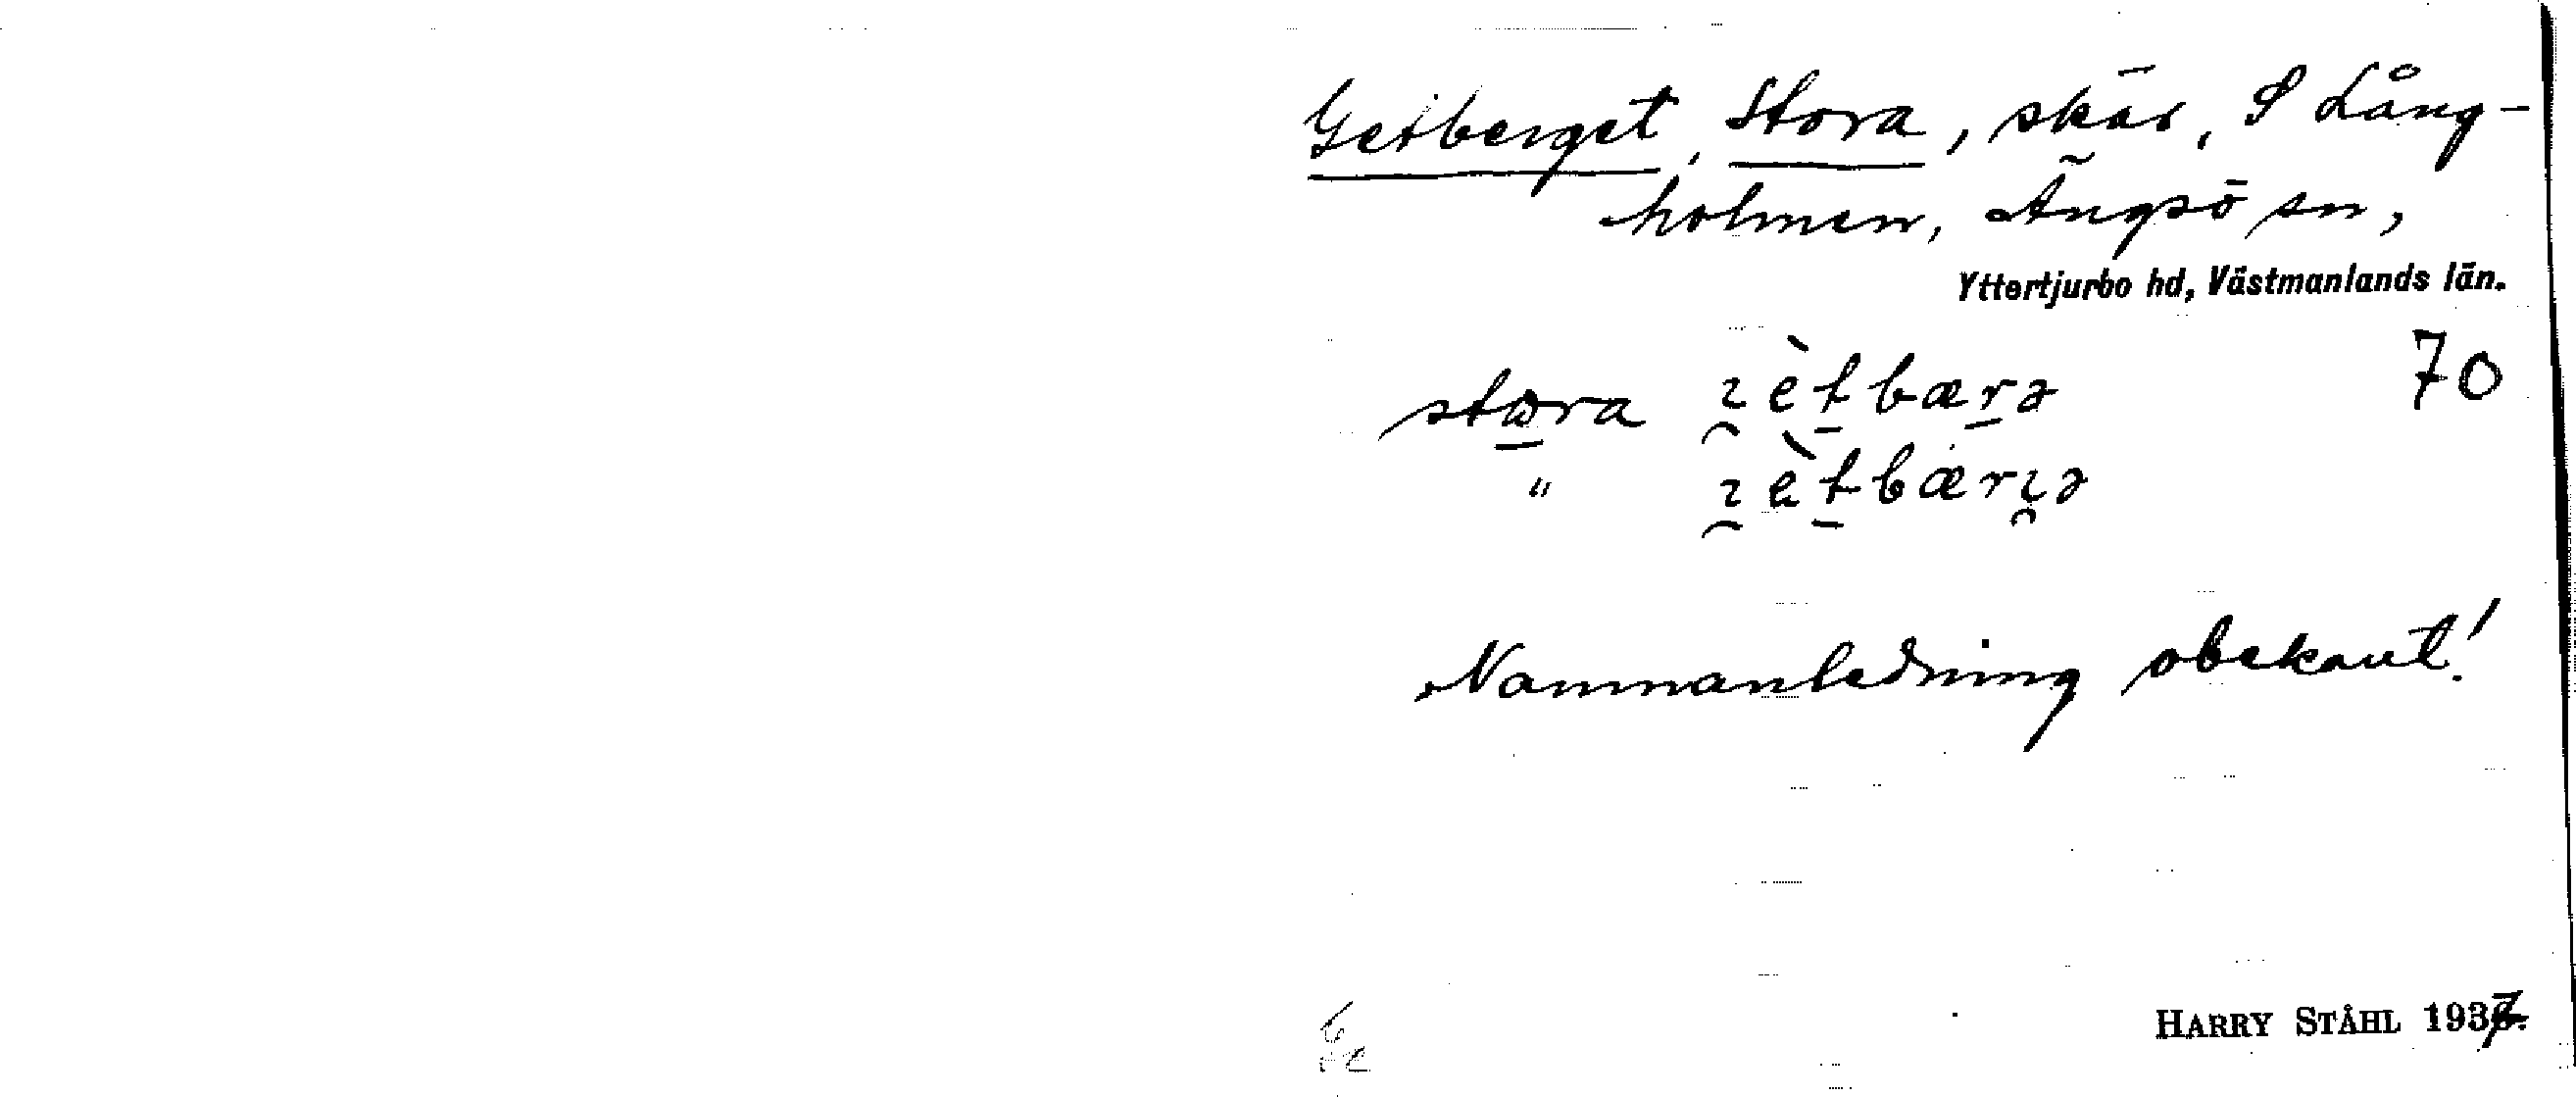 Getberget, Stora, skär, S Lång-
holmen, Ängsö sn,
Yttertjurbo hd, Västmanlands län.
70
stωra ꞟètbærə
" ꞟètbærꞟə
Namnanledning obekant!
HARRY STÅHL 1937.